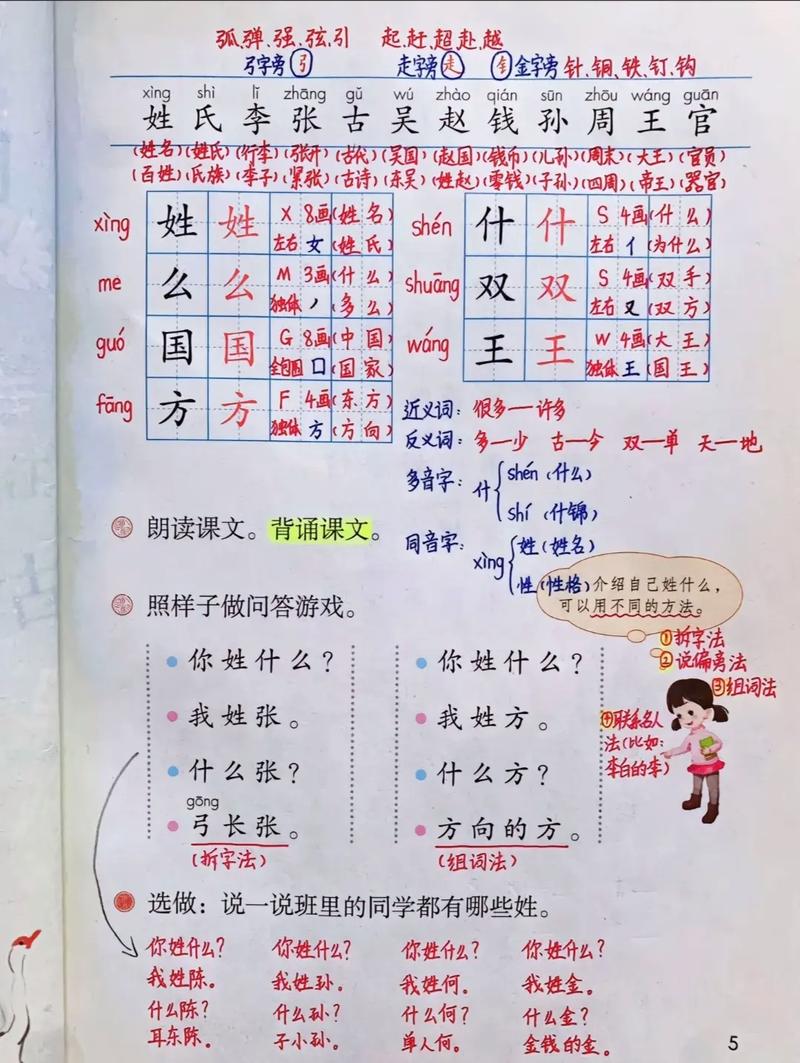 弧、弹、强、弦、引 起、赶、超、赴、越
弓字旁 弓 走字旁 走 钅 金字旁 针、铜、铁、钉、钩
xìng shì lǐ zhāng gǔ wú zhào qián sūn zhōu wáng guān
姓 氏 李 张 古 吴 赵 钱 孙 周 王 官
(姓名)(姓氏)(行李)(张开)(古代)(吴国)(赵国)(钱币)(儿孙)(周末)(大王)(官员)
(百姓)(氏族)(李子)(紧张)(古诗)(东吴)(姓赵)(零钱)(子孙)(四周)(帝王)(器官)
xìng 姓 姓 X 8画(姓名)
左右 女 (姓氏)
me 么 么 M 3画(什么)
独体 丿 (多么)
guó 国 国 G 8画(中国)
全包围 囗 (国家)
fāng 方 方 F 4画(东方)
独体 方 (方向)
shén 什 什 S 4画(什么)
左右 亻 (为什么)
shuāng 双 双 S 4画(双手)
左右 又 (双方)
wáng 王 王 W 4画(大王)
独体 王 (国王)
近义词：很多—许多
反义词：多—少 古—今 双—单 天—地
多音字：什 shén (什么)
shí (什锦)
同音字：xìng 姓 (姓名)
性 (性格)
朗读课文。背诵课文。
介绍自己姓什么，
可以用不同的方法。
①拆字法
②说偏旁法
③组词法
④联系名人
法(比如：
李白的李)
照样子做问答游戏。
你姓什么？
我姓张。
什么张？
gōng
弓长张。
(拆字法)
你姓什么？
我姓方。
什么方？
方向的方。
(组词法)
选做：说一说班里的同学都有哪些姓。
你姓什么？ 你姓什么？ 你姓什么？ 你姓什么？
我姓陈。 我姓孙。 我姓何。 我姓金。
什么陈？ 什么孙？ 什么何？ 什么金？
耳东陈。 子小孙。 单人何。 金钱的金。
5